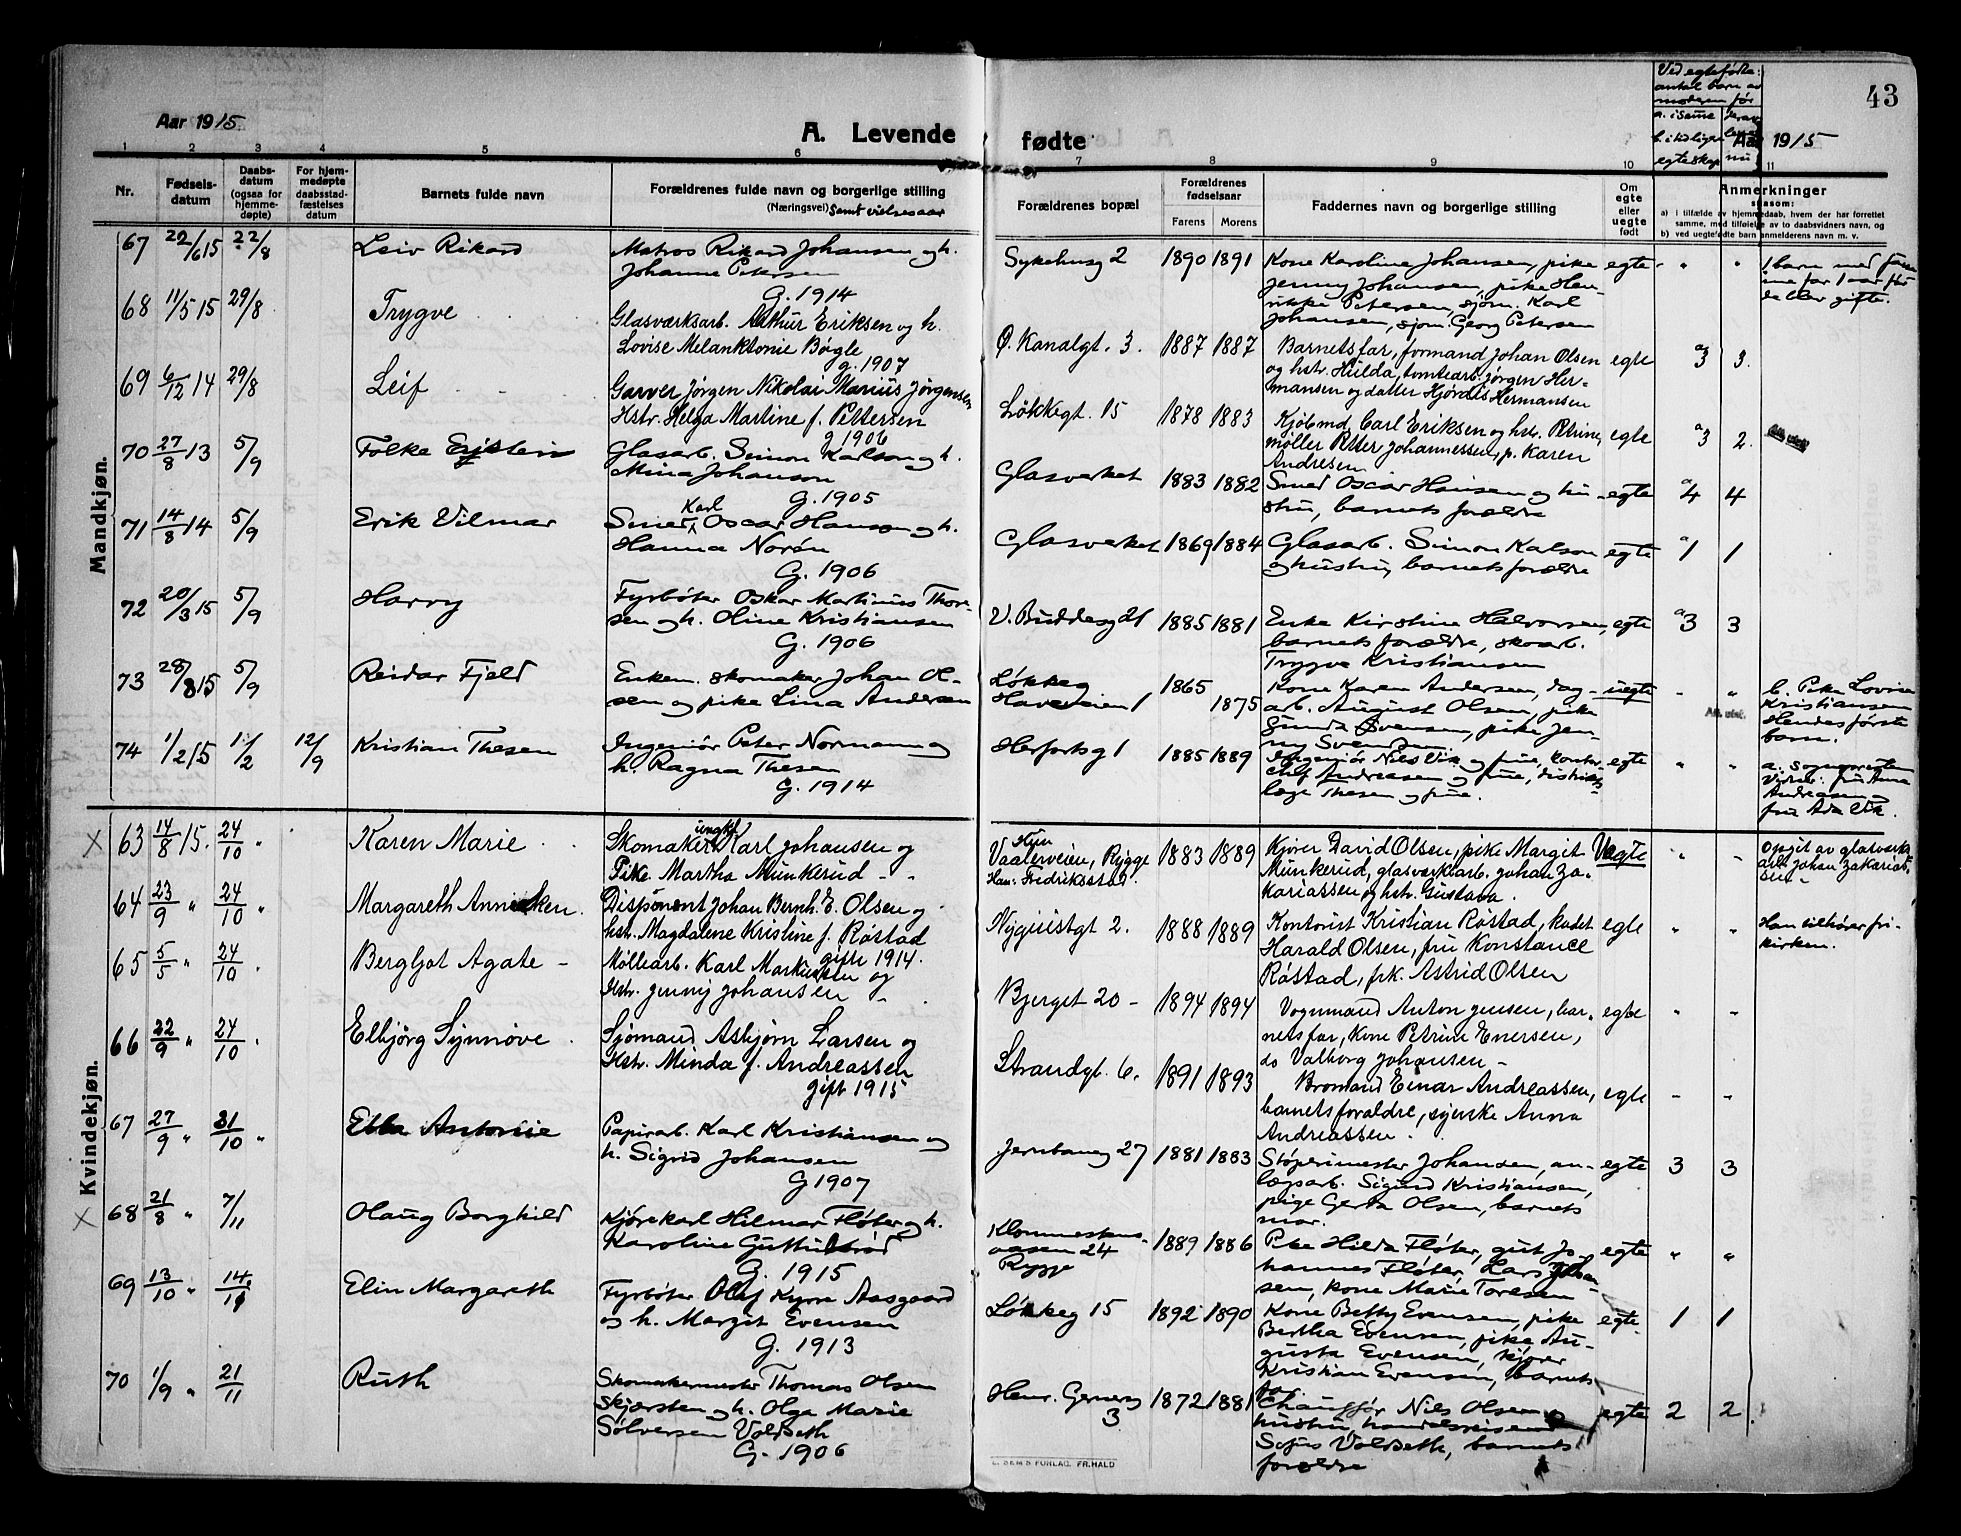 43
Aar 1915.
A. Levende
fødte
Ved egtefødte:
antal barn av
moderen før
a. i samme
b. i tidligere
egteskap
Aar 1915
1 2 3 4 5 6 7 8 9 10 11
Nr.
Fødsels-
datum
Daabs-
datum
(ogsaa for
hjemme-
døpte)
For hjem-
medøpte
daabsstad-
fæstelses
datum
Barnets fulde navn
Forældrenes fulde navn og borgerlige stilling
(Næringsvei) samt vielsesaar
Forældrenes bopæl
Forældrenes
fødselsaar
Farens Morens
Faddernes navn og borgerlige stilling
Om
egte
eller
uegte
født
Anmerkninger
saasom:
a) i tilfælde av hjemmedaab, hvem der har forrettet
samme, med tilføielse av to daabsvidners navn, og
b) ved uegtefødte barn anmelderens navn m. v.
Mandkjøn.
67 22/6 15 22/8 Leiv Rikard
Matros Rikard Johansen og h.
Johanne Petersen
G. 1914
Sykehusg 2 1890 1891
Kone Karoline Johansen, pike
Jenny Johansen, pike Hen-
rikke Petersen, sjøm. Karl
Johansen, sjøm. Georg Petersen
egte " "
1 barn med samme
for 1 aar før
de blev gifte.
68 11/5 15 29/8 Trygve
Glasværksarb. Arthur Eriksen og h.
Lovise Melanktonie Bøgle
g. 1907
Ø. Kanalgt. 3. 1887 1887
Barnets far, formand Johan Olsen
og hstr. Hulda, tomtearb. Jørgen Her-
mansen og datter Hjørdis Hermansen
egte a3 3.
69 6/12 14 29/8 Leif
Garver Jørgen Nikolai Marius Jørgensen
Hstr. Helga Martine f. Pettersen
g. 1906
Løkkegt. 15 1878 1883
Kjøbmd. Carl Eriksen og hst. Petrine,
møller Petter Johannessen, p. Karen
Andresen
egte a3 2.
70 27/8 13 5/9 Folke Eystein
Glasarb. Simon Karlson og h.
Mina Johanson
G. 1905
Glasverket 1883 1882
Smed Oscar Hansen og hu-
stru, barnets forældre
egte a4 4
71 14/8 14 5/9 Erik Vilmar
Smed Karl Oscar Hanson og h.
Hanna Norén
G. 1906
Glasverket 1869 1884
Glasarb. Simon Kalson
og hustru, barnets forældre
egte a1 1
72 20/3 15 5/9 Harry
Fyrbøter Oskar Martinius Thor-
sen og h. Oline Kristiansen
G. 1906
V. Buddesg 21 1885 1881
Enke Kirstine Halvorsen,
barnets forældre, skoarb.
Trygve Kristiansen
egte a3 3
73 28/8 15 5/9 Reidar Fjeld
Enkem. skomaker Johan Ol-
sen og pike Lina Andersen
Løkkeg
Haveveien 1 1865 1875
Kone Karen Andersen, dag-
arb. August Olsen, pike
Gunda Svensen, pike Jen-
ny Svensen
uegte - "
b. Pike Lovise
Kristiansen
Hendes første
barn.
74 1/2 15 11/2 12/9 Kristian Thesen
Ingeniør Peter Normann og
h. Ragna Thesen
G. 1914
Herfortsg 1 1885 1889
Ingeniør Nils Vik og frue, kontor-
chef Andreasen og frue, distrikts-
læge Thesen og frue.
egte " "
a. sognepresten
Vidner: fru Anna
Andreasen og
fru Ada Vik
Kvindekjøn.
X 63 14/8 15. 24/10 " Karen Marie
Skomaker ungkl. Karl Johansen og
Pike Martha Munkerud
Hun
Vaalerveien, Rygge
Han: Fredriksstad. 1883 1889
Kjører David Olsen, pike Margit
Munkerud, glasværkarb. Johan Za-
kariassen og hst. Gustava.
Uegte " "
Opgit av glasverks
arb. Johan Zakarias-
sen
64 23/9 " 24/10 " Margareth Annicken.
Disponent Johan Bernh. E. Olsen og
hst. Magdalene Kristine f. Røstad
gift 1914.
Nyquistgt 2. 1888 1889
Kontorist Kristian Røstad, kadet
Harald Olsen, fru Konstance
Røstad, frk. Astrid Olsen
egte " "
Han tilhører fri-
kirken.
65 5/5 24/10 . Bergljot Agate
Møllearb. Karl Markussen og
Hstr. Jenny Johansen
Bjerget 20 1894 1894
Vognmand Anton Jensen, bar-
nets far, kone Petrine Enersen,
do Valborg Johansen
egte " "
66 22/9 " 24/10 . Elbjörg Synnøve
Sjømand Asbjørn Larsen og
Hstr. Minda f. Andreassen
gift 1915
Strandgt. 6. 1891 1893
Bromand Einar Andreassen,
barnets foraldre, syerske Anna
Andreassen.
egte - -
67 27/9 " 31/10 " Ebba Antonie
Papirarb. Karl Kristiansen og
h. Sigrid Johansen
G 1907
Jernbaneg 27 1881 1883
Støperimester Johansen, an-
lægsarb. Sigurd Kristiansen,
pige Gerda Olsen, barnets
mor.
egte 3 3
X 68 21/8 " 7/11 Olaug Borghild
Kjørekarl Hilmar Fløter og h.
Karoline Guttulsrød
G. 1915
Klommestens-
aasen 24
Rygge 1889 1886
Pike Hilda Fløter, gut Jo-
hannes Fløter, Hans Johan-
sen, kone Marie Toresen
egte " "
69 13/10 " 14/11 Elin Margareth
Fyrbøter Olaf Kyrre Aasgaard
og h. Margit Evensen
G. 1913
Løkkeg 15 1892 1890
Kone Betty Evensen, pike
Bertha Evensen, pike Au-
gusta Evensen, kjører
Kristian Evensen, barnets
far
egte 1 1
70 1/9 " 21/11 Ruth
Skomakermester Thomas Olsen
Skjærsten og h. Olga Marie
Sølversen Voldseth
G. 1906
Henr. Gernersg
3 1872 1881
Chauffør Nils Olsen og
hustru, handelsreisende
Sofus Voldseth, barnets
forældre
egte 2 2
E. SEM'S FORLAG, FR.HALD